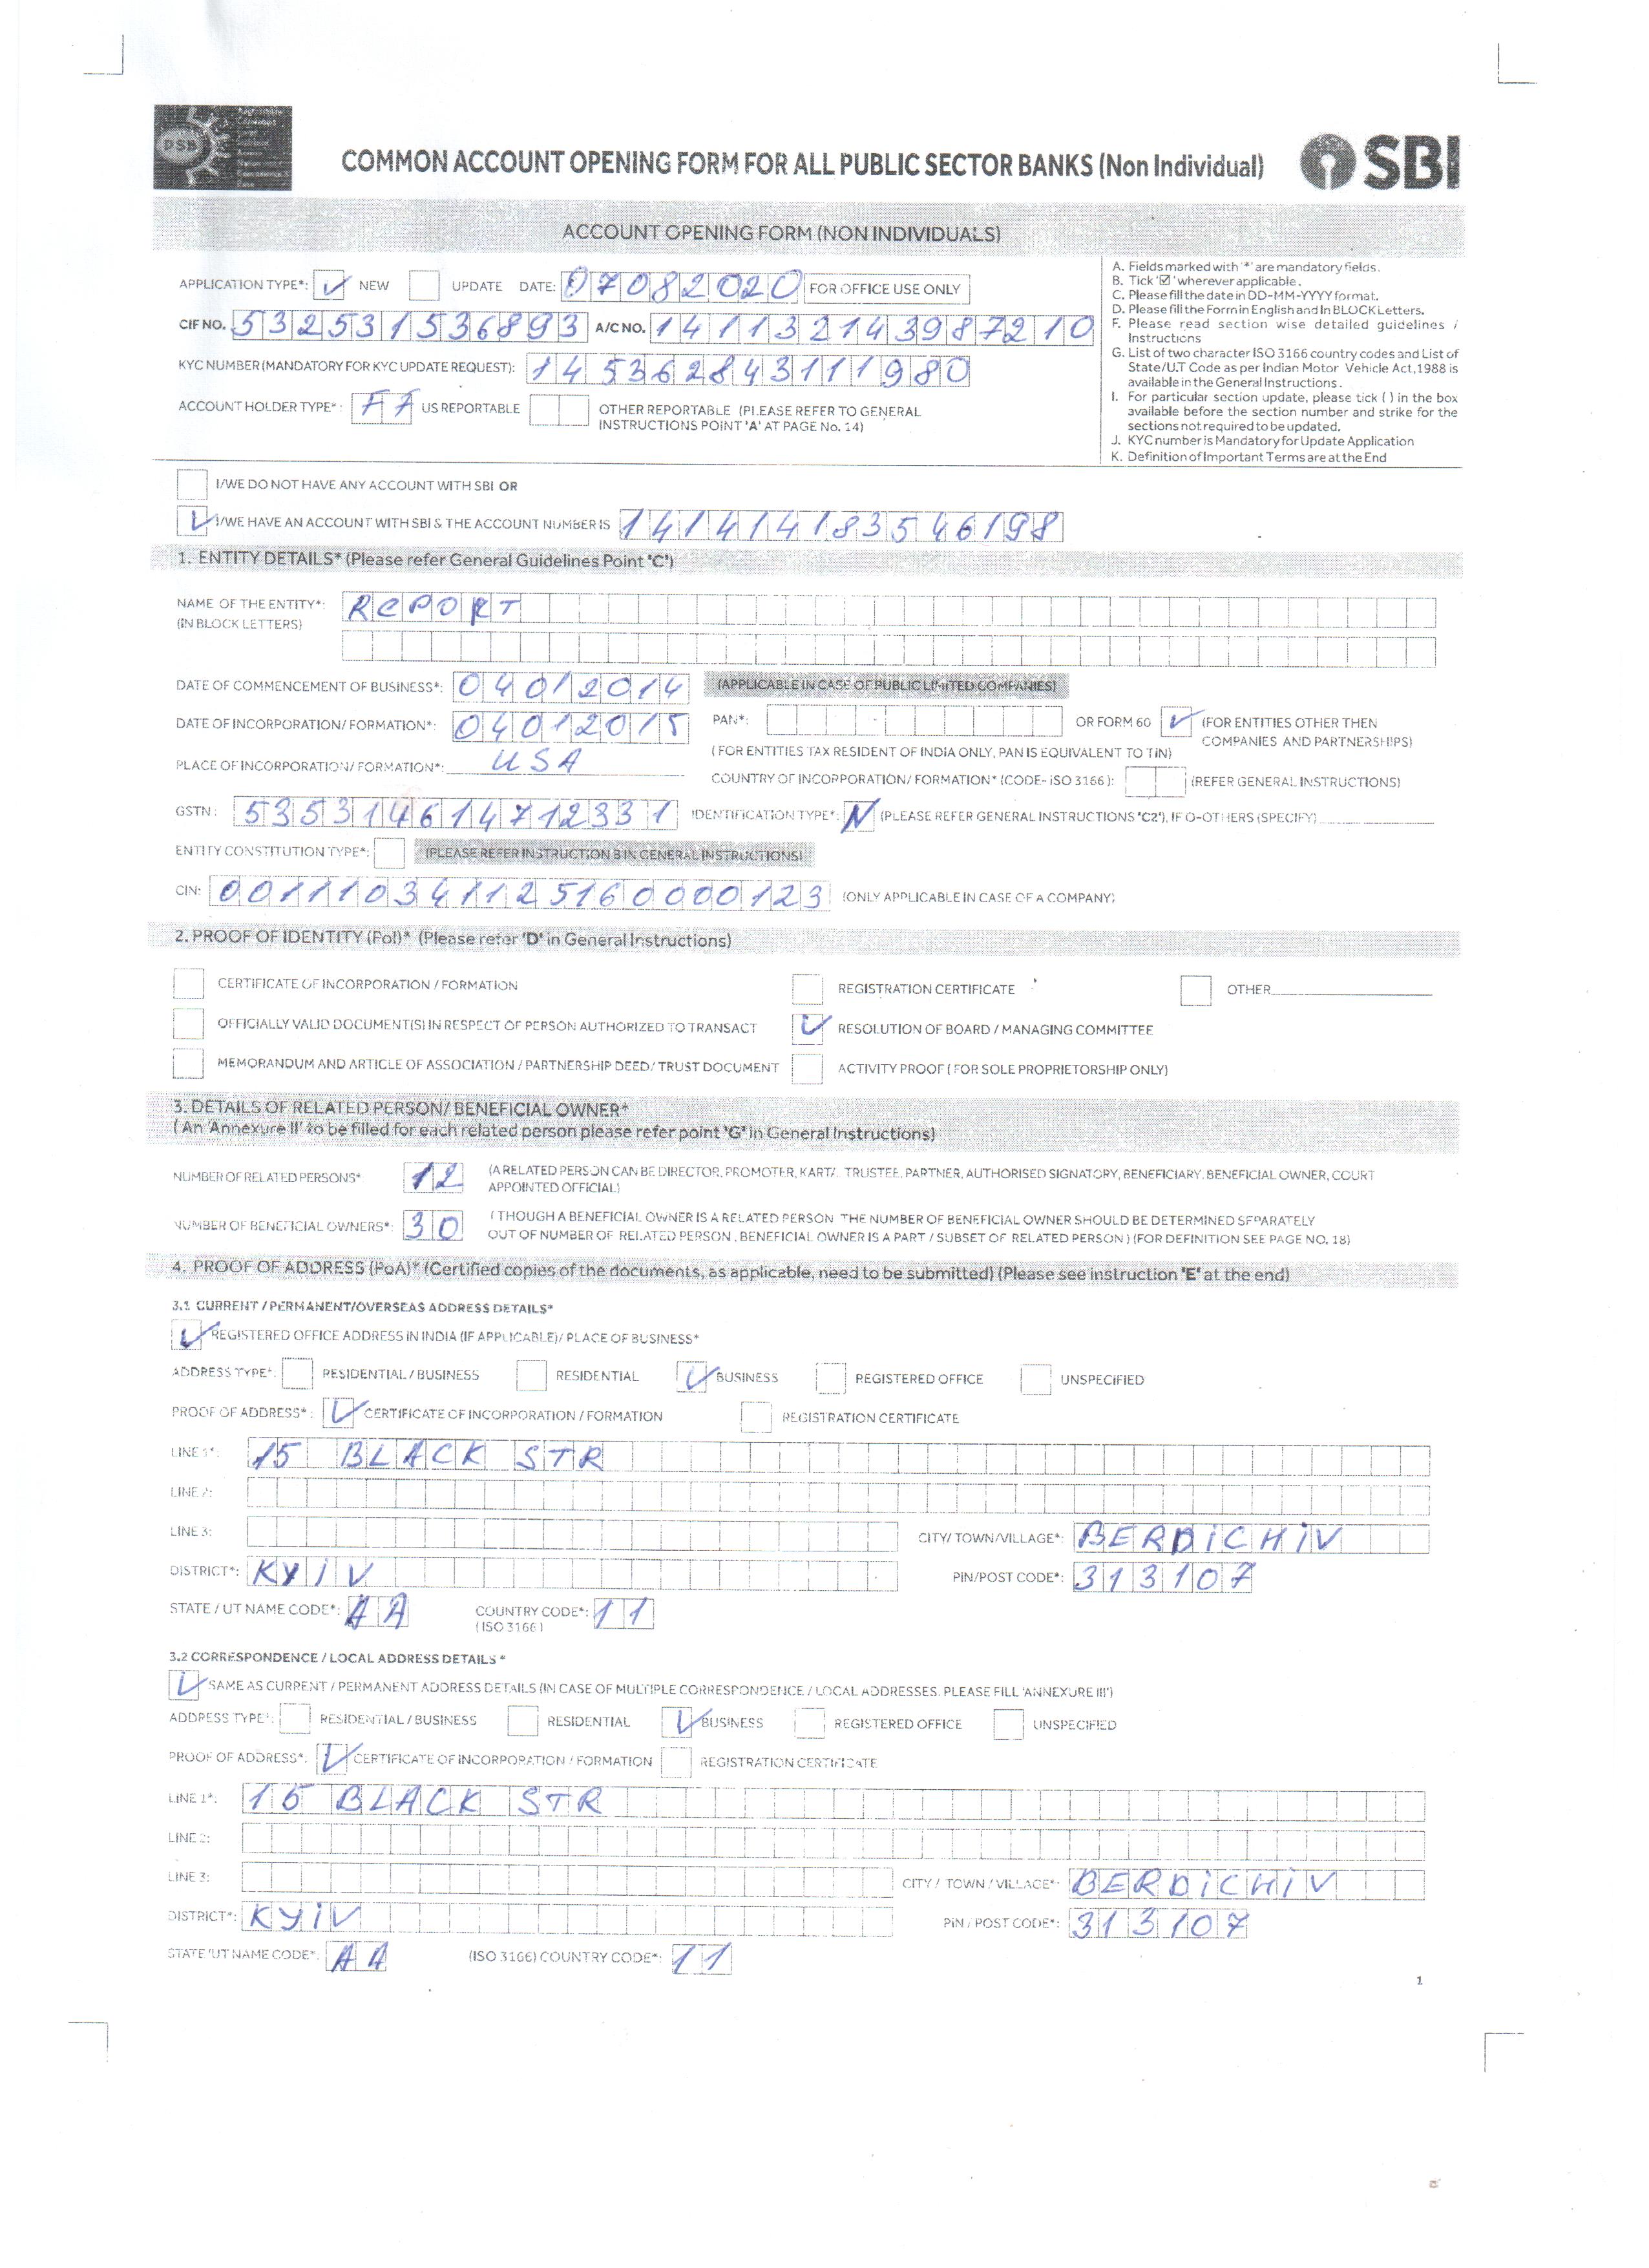 PSB
COMMON ACCOUNT OPENING FORM FOR ALL PUBLIC SECTOR BANKS (Non Individual)
SBI
ACCOUNT OPENING FORM (NON INDIVIDUALS)
APPLICATION TYPE*: ✓ NEW UPDATE DATE: 07082020 FOR OFFICE USE ONLY
CIF NO. 532531536893 A/C NO. 141132143987210
KYC NUMBER (MANDATORY FOR KYC UPDATE REQUEST): 145362843111980
ACCOUNT HOLDER TYPE*: FA US REPORTABLE OTHER REPORTABLE (PLEASE REFER TO GENERAL
INSTRUCTIONS POINT 'A' AT PAGE No. 14)
A. Fields marked with '*' are mandatory fields.
B. Tick '☑' wherever applicable.
C. Please fill the date in DD-MM-YYYY format.
D. Please fill the Form in English and In BLOCK Letters.
F. Please read section wise detailed guidelines /
Instructions
G. List of two character ISO 3166 country codes and List of
State/U.T Code as per Indian Motor Vehicle Act,1988 is
available in the General Instructions.
I. For particular section update, please tick ( ) in the box
available before the section number and strike for the
sections not required to be updated.
J. KYC number is Mandatory for Update Application
K. Definition of Important Terms are at the End
I/WE DO NOT HAVE ANY ACCOUNT WITH SBI OR
✓ I/WE HAVE AN ACCOUNT WITH SBI & THE ACCOUNT NUMBER IS 141414183546198
1. ENTITY DETAILS* (Please refer General Guidelines Point 'C')
NAME OF THE ENTITY*: REPORT
(IN BLOCK LETTERS)
DATE OF COMMENCEMENT OF BUSINESS*: 04012014 (APPLICABLE IN CASE OF PUBLIC LIMITED COMPANIES)
DATE OF INCORPORATION/ FORMATION*: 04012015 PAN*: OR FORM 60 ✓ (FOR ENTITIES OTHER THEN
COMPANIES AND PARTNERSHIPS)
(FOR ENTITIES TAX RESIDENT OF INDIA ONLY, PAN IS EQUIVALENT TO TIN)
PLACE OF INCORPORATION/ FORMATION*: USA
COUNTRY OF INCORPORATION/ FORMATION* (CODE- ISO 3166): (REFER GENERAL INSTRUCTIONS)
GSTN: 535314614712331 IDENTIFICATION TYPE*: N (PLEASE REFER GENERAL INSTRUCTIONS 'C2'), IF O-OTHERS (SPECIFY)
ENTITY CONSTITUTION TYPE*: (PLEASE REFER INSTRUCTION B IN GENERAL INSTRUCTIONS)
CIN: 001110341125160000123 (ONLY APPLICABLE IN CASE OF A COMPANY)
2. PROOF OF IDENTITY (PoI)* (Please refer 'D' in General Instructions)
CERTIFICATE OF INCORPORATION / FORMATION REGISTRATION CERTIFICATE OTHER
OFFICIALLY VALID DOCUMENT(S) IN RESPECT OF PERSON AUTHORIZED TO TRANSACT ✓ RESOLUTION OF BOARD / MANAGING COMMITTEE
MEMORANDUM AND ARTICLE OF ASSOCIATION / PARTNERSHIP DEED/ TRUST DOCUMENT ACTIVITY PROOF ( FOR SOLE PROPRIETORSHIP ONLY)
3. DETAILS OF RELATED PERSON/ BENEFICIAL OWNER*
( An 'Annexure II' to be filled for each related person please refer point 'G' in General Instructions)
NUMBER OF RELATED PERSONS* 12 (A RELATED PERSON CAN BE DIRECTOR, PROMOTER, KARTA, TRUSTEE, PARTNER, AUTHORISED SIGNATORY, BENEFICIARY, BENEFICIAL OWNER, COURT
APPOINTED OFFICIAL)
NUMBER OF BENEFICIAL OWNERS*: 30 ( THOUGH A BENEFICIAL OWNER IS A RELATED PERSON THE NUMBER OF BENEFICIAL OWNER SHOULD BE DETERMINED SEPARATELY
OUT OF NUMBER OF RELATED PERSON. BENEFICIAL OWNER IS A PART / SUBSET OF RELATED PERSON ) (FOR DEFINITION SEE PAGE NO. 18)
4. PROOF OF ADDRESS (PoA)* (Certified copies of the documents, as applicable, need to be submitted) (Please see instruction 'E' at the end)
3.1 CURRENT / PERMANENT/OVERSEAS ADDRESS DETAILS*
✓ REGISTERED OFFICE ADDRESS IN INDIA (IF APPLICABLE)/ PLACE OF BUSINESS*
ADDRESS TYPE*: RESIDENTIAL / BUSINESS RESIDENTIAL ✓ BUSINESS REGISTERED OFFICE UNSPECIFIED
PROOF OF ADDRESS*: ✓ CERTIFICATE OF INCORPORATION / FORMATION REGISTRATION CERTIFICATE
LINE 1*: 15 BLACK STR
LINE 2:
LINE 3: CITY/ TOWN/VILLAGE*: BERDICHIV
DISTRICT*: KYIV PIN/POST CODE*: 313107
STATE / UT NAME CODE*: AA COUNTRY CODE*: 11
(ISO 3166)
3.2 CORRESPONDENCE / LOCAL ADDRESS DETAILS *
✓ SAME AS CURRENT / PERMANENT ADDRESS DETAILS (IN CASE OF MULTIPLE CORRESPONDENCE / LOCAL ADDRESSES. PLEASE FILL 'ANNEXURE III')
ADDRESS TYPE*: RESIDENTIAL / BUSINESS RESIDENTIAL ✓ BUSINESS REGISTERED OFFICE UNSPECIFIED
PROOF OF ADDRESS*: ✓ CERTIFICATE OF INCORPORATION / FORMATION REGISTRATION CERTIFICATE
LINE 1*: 15 BLACK STR
LINE 2:
LINE 3: CITY / TOWN / VILLAGE*: BERDICHIV
DISTRICT*: KYIV PIN / POST CODE*: 313107
STATE 'UT NAME CODE*: AA (ISO 3166) COUNTRY CODE*: 11
1